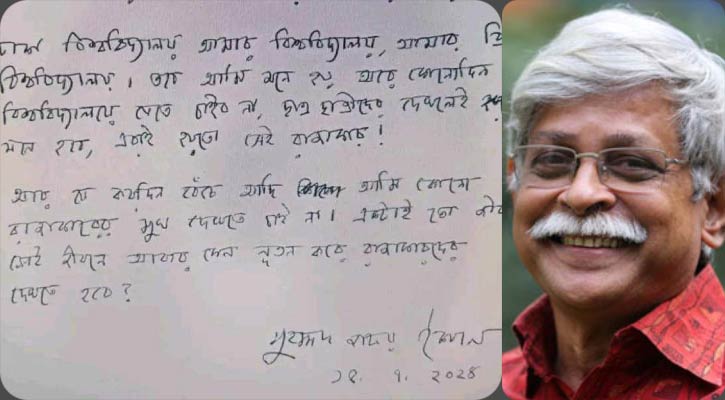 ঢাকা বিশ্ববিদ্যালয় আমার বিশ্ববিদ্যালয়, আমার প্রি
বিশ্ববিদ্যালয়। তবে আমি মনে হয় আর কোনোদিন
বিশ্ববিদ্যালয়ে যেতে চাইব না, ছাত্র ছাত্রীদের দেখলেই হয়
মনে হবে, এরাই হয়তো সেই রাজাকার!
আর যে কয়দিন বেঁচে আছি আমি কোনো
রাজাকারের মুখ দেখতে চাই না। একটাই তো জীব
সেই জীবনে আবার কেন নূতন করে রাজাকারদের
দেখতে হবে?
মুহম্মদ জাফর ইকবাল
১৫. ৭. ২০২৪